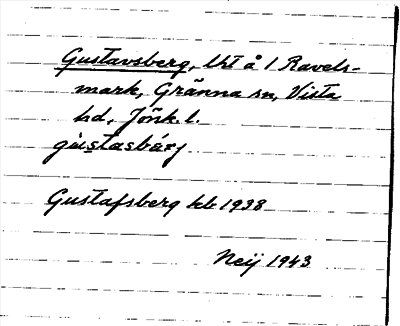 Gustavsberg, lht å 1 Ravels-
mark, Gränna sn, Vista
hd, Jönk. l.
Gustafsberg kb 1938
Neij 1943